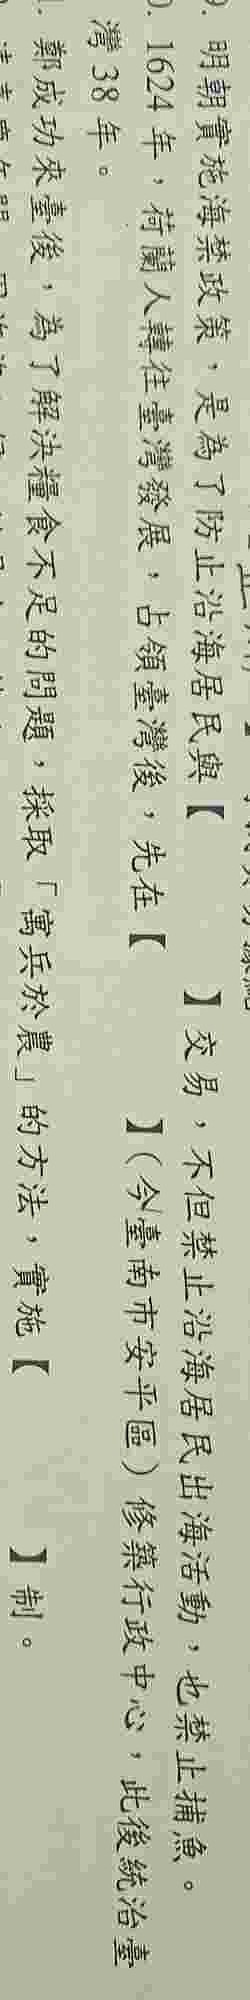 9. 明朝實施海禁政策，是為了防止沿海居民與【　　　】交易，不但禁止沿海居民出海活動，也禁止捕魚。
0. 1624年，荷蘭人轉往臺灣發展，占領臺灣後，先在【　　　】（今臺南市安平區）修築行政中心，此後統治臺
灣38年。
1. 鄭成功來臺後，為了解決糧食不足的問題，採取「寓兵於農」的方法，實施【　　　】制。